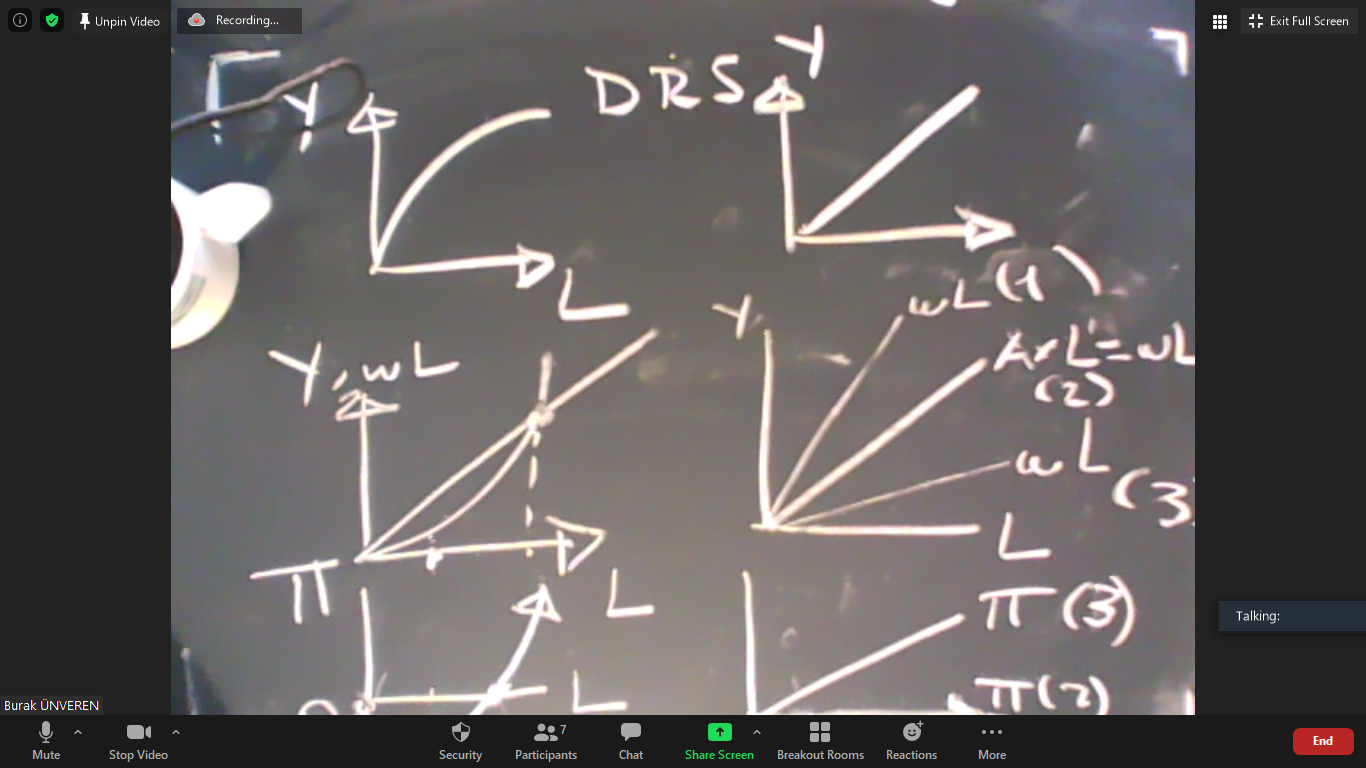 Unpin Video
Recording...
Exit Full Screen
Y
DRS
Y
L
wL (1)
Y
A×L=wL
(2)
Y, wL
wL
(3)
L
π
L
π (3)
L
π(2)
Talking:
Burak ÜNVEREN
Mute
Stop Video
Security
Participants
7
Chat
Share Screen
Breakout Rooms
Reactions
More
End